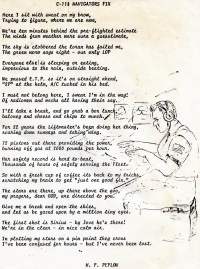 C-118 NAVIGATORS FIX
Here I sit with sweat on my brow,
Trying to figure, where we are now,
We're ten minutes behind the pre-flighted estimate
The winds from weather were sure a guesstimate,
The sky is clobbered the loran has failed me,
The green worm says right - our only LOP
Everyone else is sleeping or eating,
Impervious to the rain, outside beating.
We passed E.T.P. so it's on straight ahead,
"IP" at the helm, A/C tucked in his bed.
I must not belong here, I swear I'm in the way!
Of radioman and mechs all having their say.
I'll take a break, and go gnaw a box lunch
baloney and cheese and chips to munch.
For 12 years the Liftmaster's been doing her thing,
working down runways and taking wing.
72 pistons out there providing the power,
burning avgas at 1080 pounds per hour.
Her safety record is hard to beat,
Thousands of hours of safely serving the fleet.
So with a fresh cup of coffee its back to my tricks,
scratching my brain to get "just one good fix."
The stars are there, up there above the goo,
my prayers, dear GOD, are directed to you.
Give me a break and open the skies,
and let us be gazed upon by a million tiny eyes.
The first shot is Sirius - by love he's there!
We're in the clear - in nice calm air.
In plotting my stars on a pin point they cross
I've been confused for hours - but I've never been lost.
W. F. PEPLOW